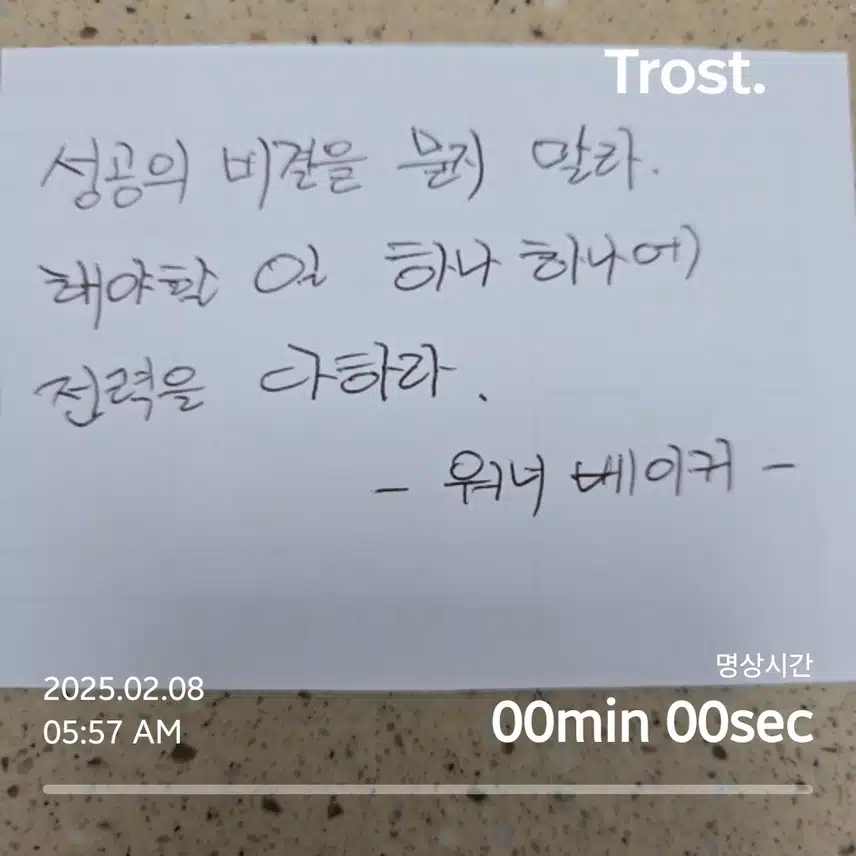 Trost.
성공의 비결을 묻지 말라.
해야할 일 하나 하나에
전력을 다하라.
- 워너 베이커 -
2025.02.08
05:57 AM
명상시간
00min 00sec